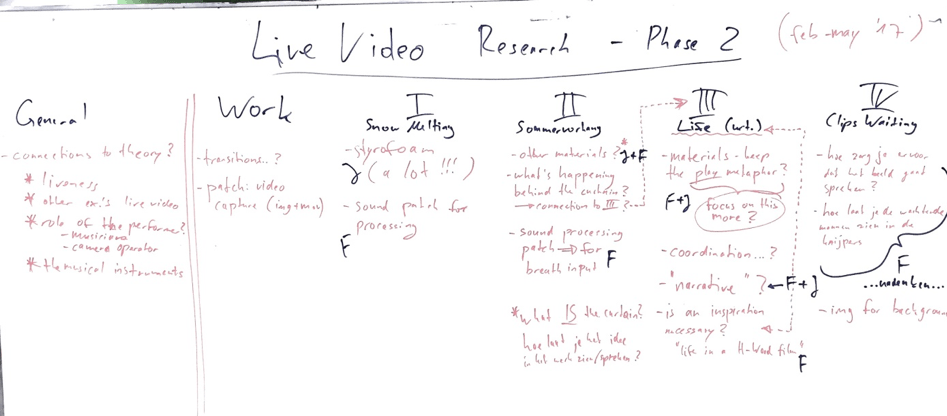 Live Video Research - Phase 2 (feb-may '17)
General
- connections to theory?
* liveness
* other ex.'s live video
* role of the performer?
- musicians
- camera operator
* the musical instruments
Work
- transitions..?
- patch: video
capture (img+mov)
I
Snow Melting
- styrofoam
J (a lot !!!)
- sound patch for
processing
F
II
Sommervorhang
- other materials? * J+F
- what's happening
behind the curtain?
→ connection to III?
- sound processing
patch ⇒ for
breath input F
* what IS the curtain?
hoe laat je het idee
in het werk zien/spreken?
III
Life (wrt.)
- materials - keep
the play metaphor?
F+J focus on this
more?
- coordination...?
- "narrative" ? ← F+J
- is an inspiration
necessary?
"life in a H-Wood film"
F
IV
Clips Waiting
- hoe zorg je ervoor
dat het beeld goed
spreken?
- hoe laat je de wachtende
mannen zien in de
knijpers
F
...nadenken...
- img for background